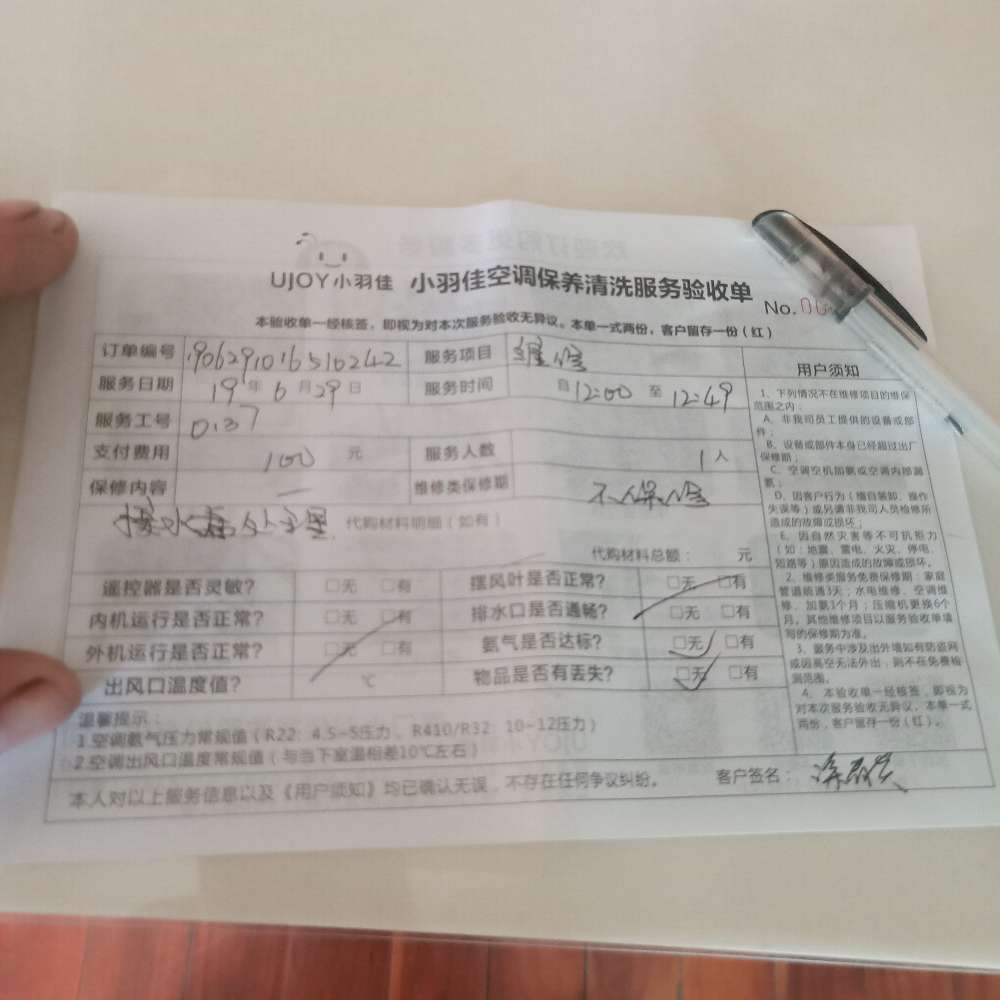 UJOY小羽佳 小羽佳空调保养清洗服务验收单
No.00
本验收单一经核签，即视为对本次服务验收无异议。本单一式两份，客户留存一份（红）
订单编号 1906291016510242 服务项目 维修
服务日期 19年6月29日 服务时间 自12:00至12:49
服务工号 0137
支付费用 100元 服务人数 1人
保修内容 一 维修类保修期 不保修
接水 处理 代购材料明细（如有）
代购材料总额： 元
遥控器是否灵敏？ □无 □有 摆风叶是否正常？ □无 □有
内机运行是否正常？ □无 □有 排水口是否通畅？ □无 □有
外机运行是否正常？ □无 □有 氨气是否达标？ □无 □有
出风口温度值？ ℃ 物品是否有丢失？ □无 □有
温馨提示：
1.空调氨气压力常规值（R22：4.5~5压力、R410/R32：10~12压力）
2.空调出风口温度常规值（与当下室温相差10℃左右）
本人对以上服务信息以及《用户须知》均已确认无误，不存在任何争议纠纷。 客户签名：
用户须知
1、下列情况不在维修项目的维保
范围之内：
A、非我司员工提供的设备或部
件；
B、设备或部件本身已经超过出厂
保修期；
C、空调空机加氨或空调内部漏
氨；
D、因客户行为（擅自装卸、操作
失误等）或另请非我司人员检修所
造成的故障或损坏；
E、因自然灾害等不可抗拒力
（如：地震、雷电、火灾、停电、
短路等）原因造成的故障或损坏。
2、维修类服务免费保修期：家庭
管道疏通3天；水电维修、空调维
修、加氨1个月；压缩机更换6个
月。其他维修项目以服务验收单填
写的保修期为准。
3、服务中涉及出外墙如有防盗网
或因高空无法外出，则不在免费检
测范围。
4、本验收单一经核签，即视为
对本次服务验收无异议。本单一式
两份，客户留存一份（红）。